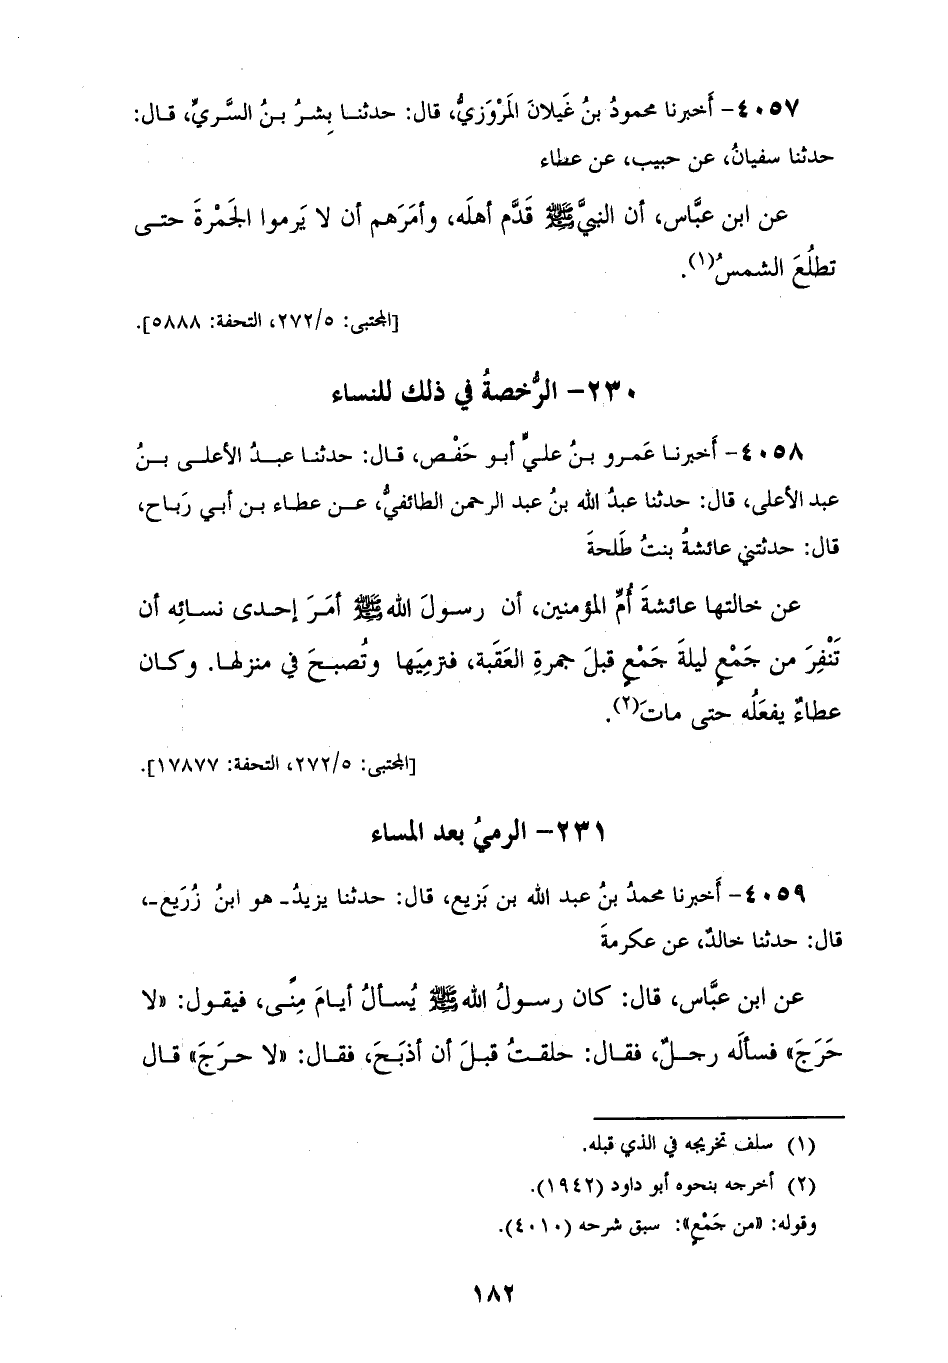 ٤٠٥٧- أَخبرنا محمودُ بنُ غَيلانَ المَرْوَزيُّ، قال: حدثنا بِشرُ بنُ السَّريِّ، قال:
حدثنا سفيانُ، عن حبيب، عن عطاء
عن ابن عبَّاس، أن النبيَّ ﷺ قَدَّم أهلَه، وأمَرَهم أن لا يَرموا الجَمْرةَ حتى
تطلُعَ الشمسُ(١).
[المجتبى: ٢٧٢/٥، التحفة: ٥٨٨٨].
٢٣٠- الرُّخصةُ في ذلك للنساء
٤٠٥٨- أَخبرنا عَمرو بنُ عليٍّ أبو حَفْص، قال: حدثنا عبدُ الأعلى بنُ
عبد الأعلى، قال: حدثنا عبدُ الله بنُ عبد الرحمن الطائفيُّ، عن عطاء بن أبي رَباح،
قال: حدثتني عائشةُ بنتُ طَلحةَ
عن خالتها عائشةَ أُمِّ المؤمنين، أن رسولَ الله ﷺ أمَرَ إحدى نسائِه أن
تَنْفِرَ من جَمْعٍ ليلةَ جَمْعٍ قبلَ جمرةِ العَقَبة، فترمِيَها وتُصبحَ في منزلها. وكان
عطاءٌ يفعَلُه حتى ماتَ(٢).
[المجتبى: ٢٧٢/٥، التحفة: ١٧٨٧٧].
٢٣١- الرميُ بعد المساء
٤٠٥٩- أَخبرنا محمدُ بنُ عبد الله بن بَزيع، قال: حدثنا يزيدُ- هو ابنُ زُرَيع-،
قال: حدثنا خالدٌ، عن عكرمةَ
عن ابن عبَّاس، قال: كان رسولُ الله ﷺ يُسألُ أيامَ مِنًى، فيقول: «لا
حَرَجَ» فسألَه رجلٌ، فقال: حلقتُ قبلَ أن أذبَحَ، فقال: «لا حرَجَ» قال
(١) سلف تخريجه في الذي قبله.
(٢) أخرجه بنحوه أبو داود (١٩٤٢).
وقوله: «من جَمْعٍ»: سبق شرحه (٤٠١٠).
١٨٢